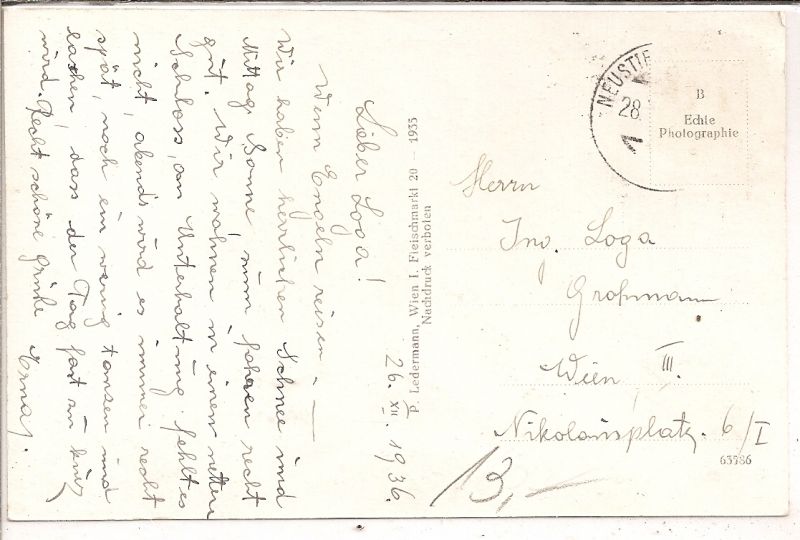 26. XII. 1936.
Lieber Loga!
Wenn Engeln reisen. —
Wir haben herrlichen Schnee und
Mittag Sonne, zum fahren recht
gut. Wir wohnen in einem netten
Schloss, an Unterhaltung fehlt es
nicht, abends wird es immer recht
spät, noch ein wenig tanzen und
lachen, dass der Tag fast zu kurz
wird. Recht schöne Grüße
Erna.
P. Ledermann, Wien I. Fleischmarkt 20 — 1935
Nachdruck verboten
NEUSTIF
28.
1
B
Echte
Photographie
Herrn
Ing. Loga
Großmann
Wien III.
Nikolausplatz. 6/I
63786
13,-